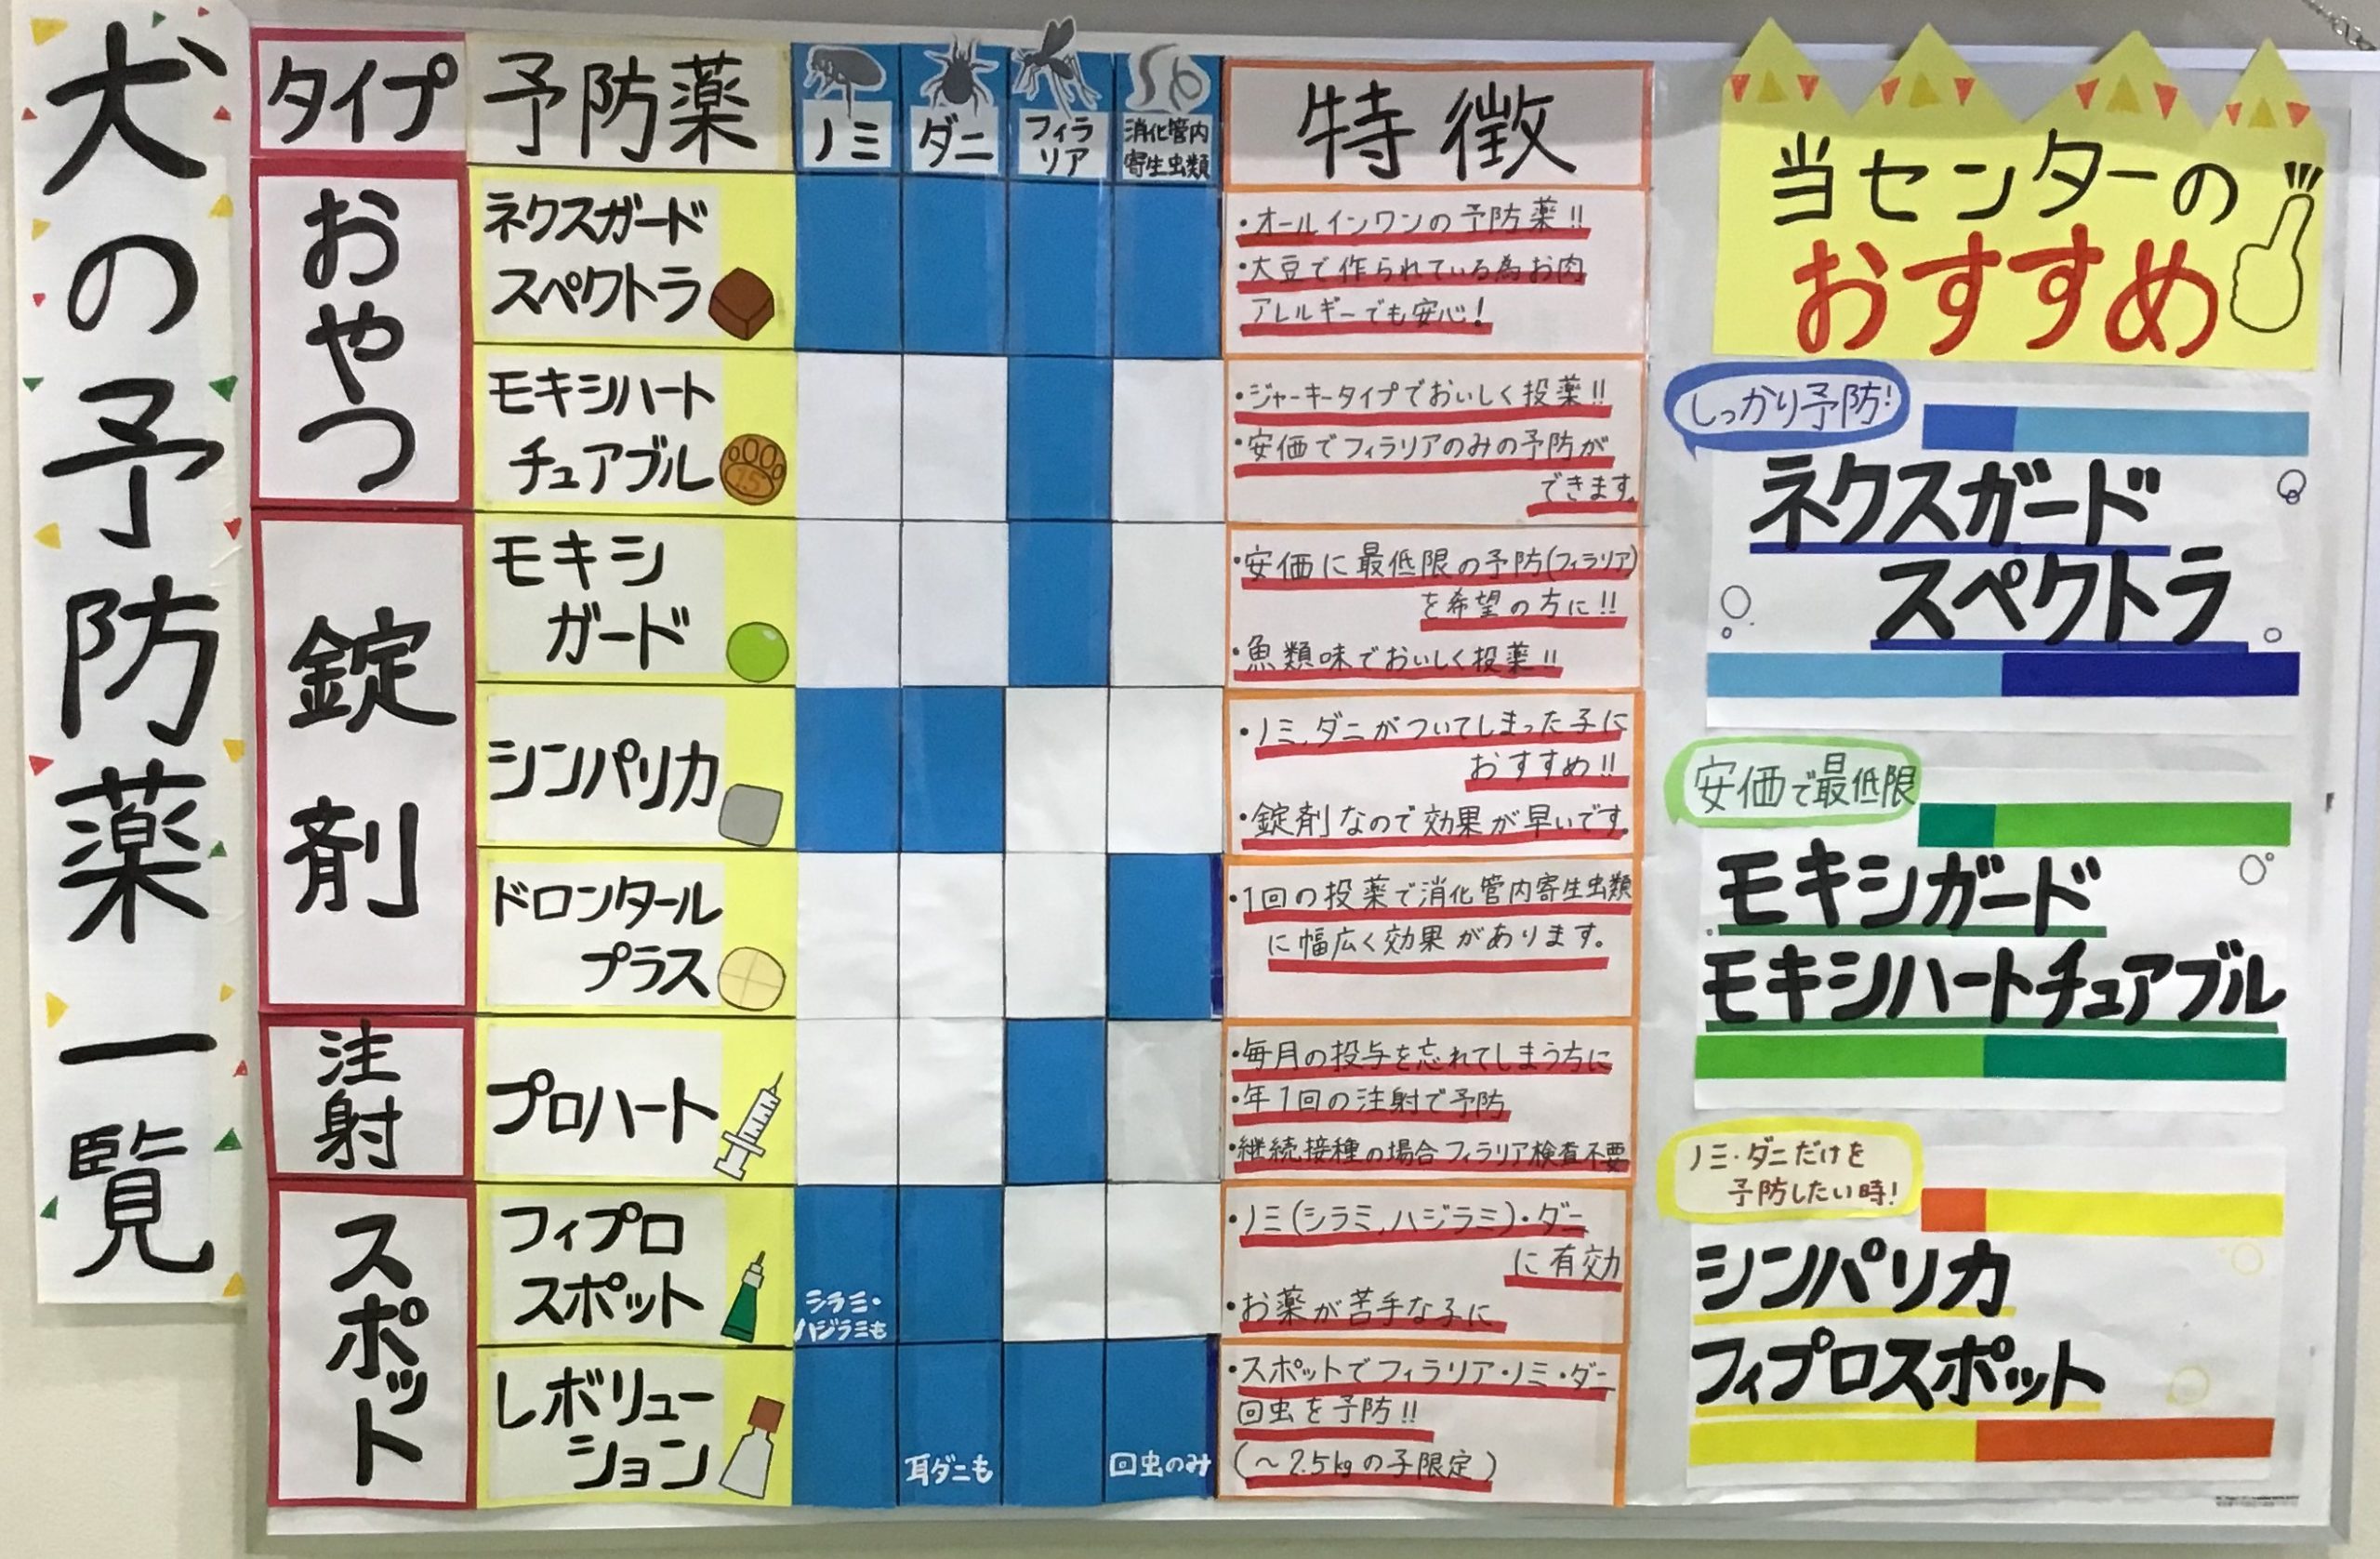 犬の予防薬一覧
タイプ
予防薬
ノミ
ダニ
フィラ
リア
消化管内
寄生虫類
特徴
おやつ
ネクスガード
スペクトラ
・オールインワンの予防薬!!
・大豆で作られている為お肉
アレルギーでも安心!
モキシハート
チュアブル
・ジャーキータイプでおいしく投薬!!
・安価でフィラリアのみの予防が
できます。
錠剤
モキシ
ガード
・安価に最低限の予防(フィラリア)
を希望の方に!!
・魚類味でおいしく投薬!!
シンパリカ
・ノミ、ダニがついてしまった子に
おすすめ!!
・錠剤なので効果が早いです。
ドロンタール
プラス
・1回の投薬で消化管内寄生虫類
に幅広く効果があります。
注射
プロハート
・毎月の投与を忘れてしまう方に
・年1回の注射で予防
・継続接種の場合フィラリア検査不要
スポット
フィプロ
スポット
シラミ・
ハジラミも
・ノミ(シラミ、ハジラミ)・ダニ
に有効
・お薬が苦手な子に
レボリュー
ション
耳ダニも
回虫のみ
・スポットでフィラリア・ノミ・ダニ
回虫を予防!!
(〜2.5kgの子限定)
当センターの
おすすめ
しっかり予防!
ネクスガード
スペクトラ
安価で最低限
モキシガード
モキシハートチュアブル
ノミ・ダニだけを
予防したい時!
シンパリカ
フィプロスポット